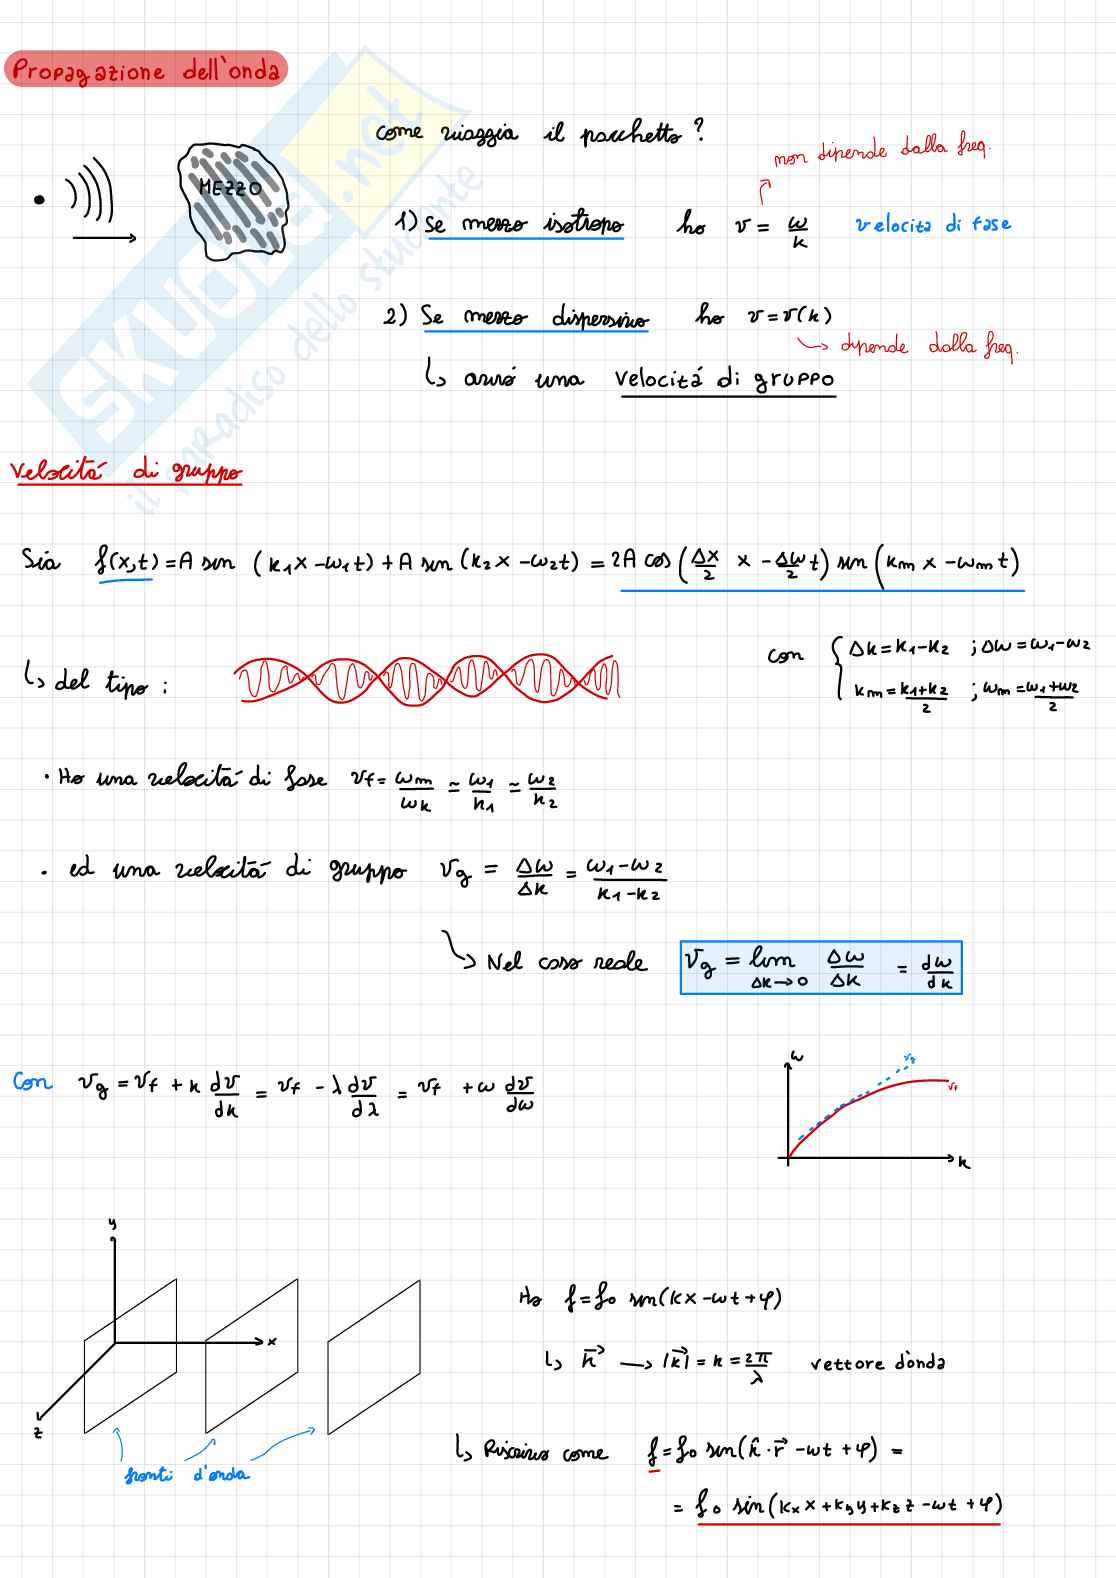 Propagazione dell'onda
come viaggia il pacchetto ?
non dipende dalla freq.
MEZZO
1) Se mezzo isotropo ho v = ω/k velocità di fase
2) Se mezzo dispersivo ho v = v(k)
↳ dipende dalla freq.
↳ avrò una velocitá di gruppo
Velocitá di gruppo
Sia f(x,t) = A sin (k1x - ω1t) + A sin (k2x - ω2t) = 2A cos (Δx/2 x - Δω/2 t) sin (km x - ωm t)
con { Δk = k1 - k2 ; Δω = ω1 - ω2
km = k1+k2/2 ; ωm = ω1+ω2/2
↳ del tipo :
· Ho una velocitá di fase vf = ωm/ωk ≃ ω1/k1 ≃ ω2/k2
· ed una velocitá di gruppo vg = Δω/Δk = ω1 - ω2/k1 - k2
↳ Nel caso reale vg = lim Δk→0 Δω/Δk = dω/dk
Con vg = vf + k dv/dk = vf - λ dv/dλ = vf + ω dv/dω
ω
vg
vf
k
y
x
z
fronti d'onda
Ho f = f0 sin(kx - ωt + φ)
↳ k⃗ → |k⃗| = k = 2π/λ vettore d'onda
↳ Riscrivo come f = f0 sin(k̂ · r⃗ - ωt + φ) =
= f0 sin(kx x + ky y + kz z - ωt + φ)
SKUOLA.net
il paradiso dello studente